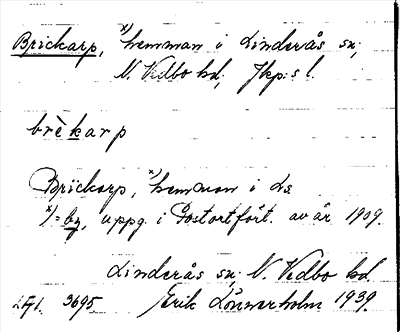 Brickarp, x) hemman i Linderås sn;
N. Vedbo hd; Jkp:s l.
brèkarp
Brickarp, x) hemman i Ls
x)=by, uppg. i Postortfört. av år 1909.
Linderås sn; N. Vedbo hd.
3695 Erik Lönnerholm 1939.